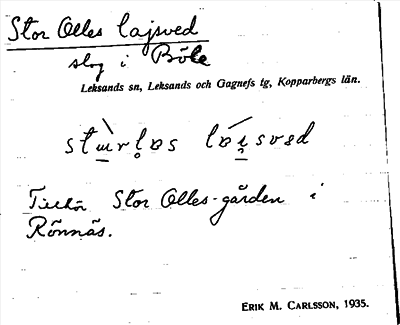 Stor Olles lajsved
skog i Böle
Leksands sn, Leksands och Gagnefs tg, Kopparbergs län.
Tillhör Stor Olles-gården i
Rönnäs.
ERIK M. CARLSSON, 1935.